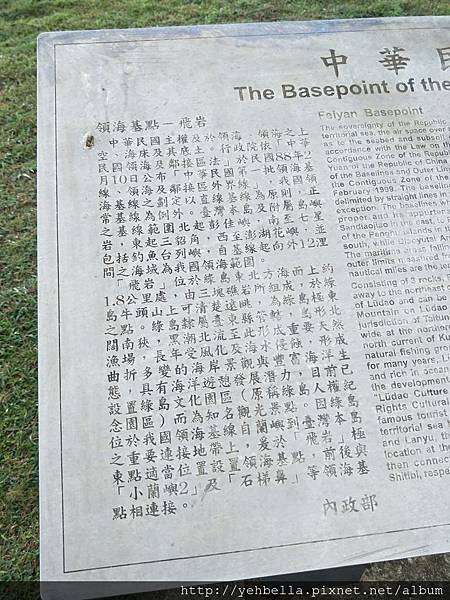 中華民
The Basepoint of the
領海基點－飛岩
中華民國主權及於領海、領海之上
空、海床及其底土。行政院依「中華
民國領海及鄰接區法」於民國88年2
月10日公布「中華民國第一批領海基
線、領海及鄰接區外界線」，我國領
海基線之劃定以直線基線為原則，正
常基線為例外。臺灣本島及附屬島嶼
之基線公布範圍北起彭佳嶼，南至七星
岩，東起三貂角，西至澎湖花嶼，並
包括釣魚台列嶼，自基線起向外12浬
間之海域為我國領海範圍。
「飛岩」位於綠島東北方海面上約
1.8公里處，由三塊礁岩所組成，於綠
島牛頭山上可清楚遠眺，為綠島極東
之點。綠島隸屬臺東縣管轄，島形北
闊南狹，黑潮北流至此形成重要天然
漁場，長年受風化及海水侵蝕，形成
曲折多變的海岸景觀與豐富海洋生
態，具有海洋遊憩發展潛力，目前已
設置綠島文化園區（原稱綠島人權紀
念園區）而為知名觀光景點。因綠島
位於我國領海基線自蘭嶼到臺灣本島
之重要連接地帶上，爰於「飛岩」極
東適當位置設置領海基點，前後與
「小蘭嶼2」及「石梯鼻」等領海基
點相連接。
內政部
Feiyan Basepoint
The sovereignty of the Republic
territorial sea, the air space over
as to the seabed and subsoil
accordance with the Law on th
Contiguous Zone of the Republ
Yuan of the Republic of China
of the Baselines and Outer Lin
the Contiguous Zone of the
February 1999. The baseline
delimited by straight lines in
exception. The baselines wh
proper, and its appurtenan
Sandiaojiao in the east, Ci
of the Penghu Islands in th
south, while Diaoyutai An
The maritime a
outer limits measured from
nautical miles are the ter
Consisting of 3 rocks, F
away to the northeast
of Lüdao and can be
Mountain on Lüdao
jurisdiction of Taitun
wide at the northern
north current of Ku
natural fishing grou
for many years, L
and rich in ocean
the development
"Lüdao Cultural
Rights Cultural
famous tourist
territorial sea
and Lanyu, the
location at the
then connect
Shitibi, respe
http://yehbella.pixnet.net/album